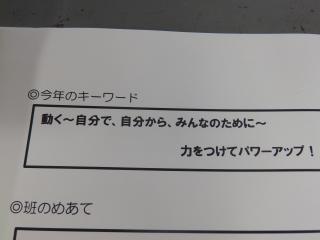 ◎今年のキーワード
動く～自分で、自分から、みんなのために～
力をつけてパワーアップ！
◎班のめあて